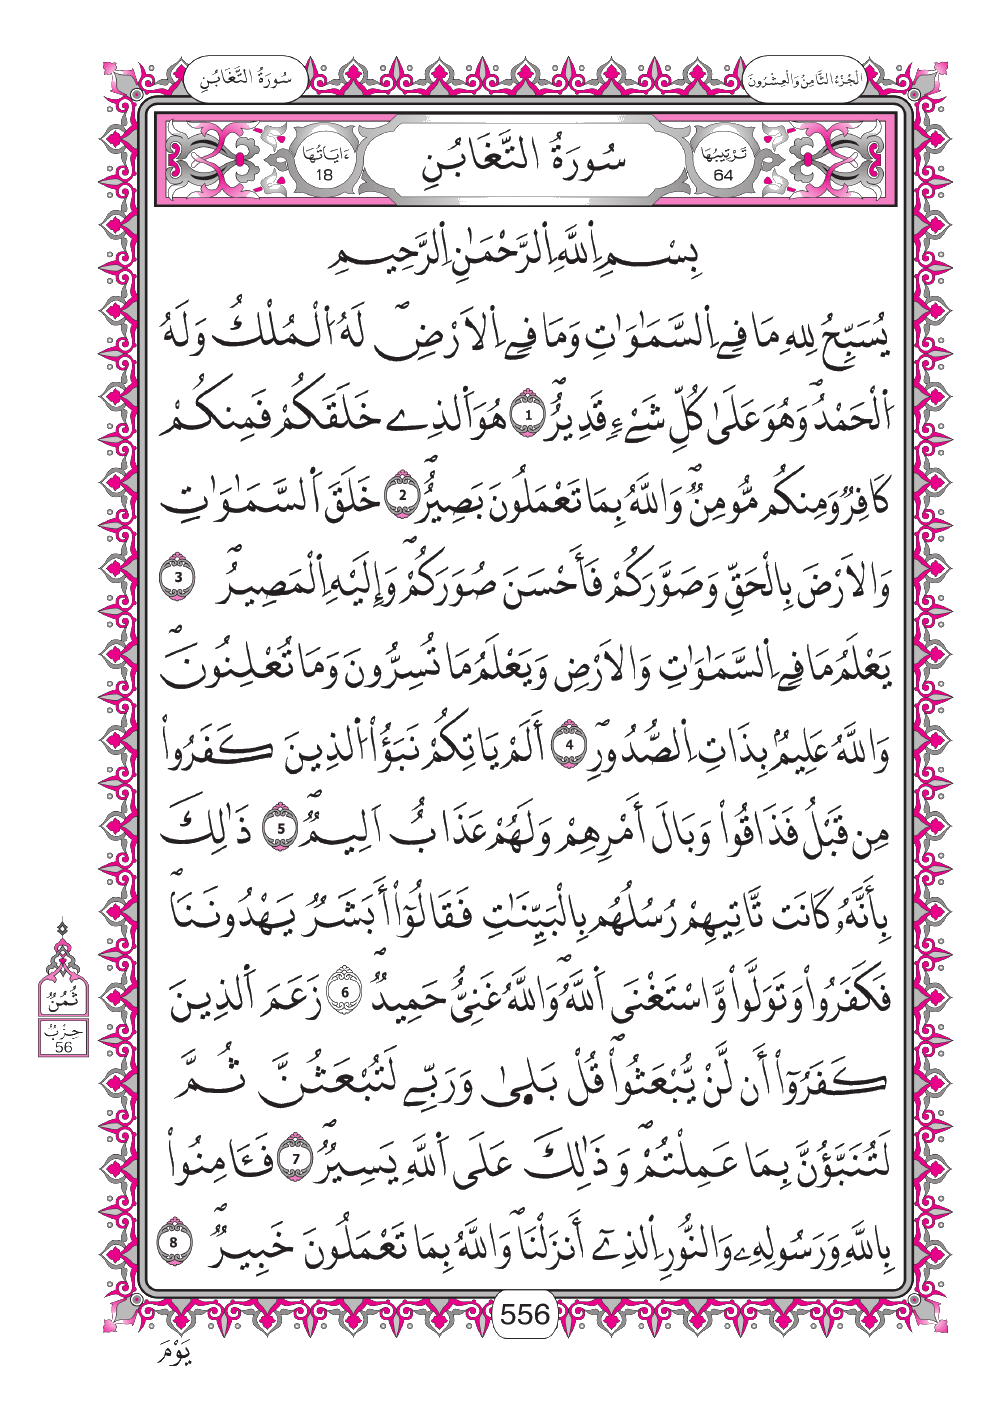 الْجُزْءُ الثَّامِنُ وَالْعِشْرُونَ
سُورَةُ التَّغَابُنِ
تَرْتِيبُهَا 64
سُورَةُ التَّغَابُنِ
ءَايَاتُهَا 18
بِسْمِ اِ۬للَّهِ اِ۬لرَّحْمَٰنِ اِ۬لرَّحِيمِ
يُسَبِّحُ لِلهِ مَا فِے اِ۬لسَّمَٰوَٰتِ وَمَا فِے اِ۬لَارْضِۖ لَهُ اُ۬لْمُلْكُ وَلَهُ
اُ۬لْحَمْدُۖ وَهُوَ عَلَىٰ كُلِّ شَےْءٖ قَدِيرٌۖ 1 هُوَ اَ۬لذِے خَلَقَكُمْ فَمِنكُمْ
كَافِرٞ وَمِنكُم مُّومِنٞۖ وَاللَّهُ بِمَا تَعْمَلُونَ بَصِيرٌۖ 2 خَلَقَ اَ۬لسَّمَٰوَٰتِ
وَالَارْضَ بِالْحَقِّ وَصَوَّرَكُمْ فَأَحْسَنَ صُوَرَكُمْۖ وَإِلَيْهِ اِ۬لْمَصِيرُۖ 3
يَعْلَمُ مَا فِے اِ۬لسَّمَٰوَٰتِ وَالَارْضِ وَيَعْلَمُ مَا تُسِرُّونَ وَمَا تُعْلِنُونَۖ
وَاللَّهُ عَلِيمُۢ بِذَاتِ اِ۬لصُّدُورِۖ 4 أَلَمْ يَاتِكُمْ نَبَؤُاْ اُ۬لذِينَ كَفَرُواْ
مِن قَبْلُ فَذَاقُواْ وَبَالَ أَمْرِهِمْ وَلَهُمْ عَذَابٌ اَلِيمٞۖ 5 ذَٰلِكَ
بِأَنَّهُۥ كَانَت تَّاتِيهِمْ رُسُلُهُم بِالْبَيِّنَٰتِ فَقَالُوٓاْ أَبَشَرٞ يَهْدُونَنَاۖ
فَكَفَرُواْ وَتَوَلَّواْ وَّاسْتَغْنَى اَ۬للَّهُۖ وَاللَّهُ غَنِيٌّ حَمِيدٞۖ 6 زَعَمَ اَ۬لذِينَ
كَفَرُوٓاْ أَن لَّنْ يُّبْعَثُواْۖ قُلْ بَلَىٰ وَرَبِّے لَتُبْعَثُنَّ ثُمَّ
لَتُنَبَّؤُنَّ بِمَا عَمِلْتُمْۖ وَذَٰلِكَ عَلَى اَ۬للَّهِ يَسِيرٞۖ 7 فَـَٔامِنُواْ
بِاللَّهِ وَرَسُولِهِۦ وَالنُّورِ اِ۬لذِےٓ أَنزَلْنَاۖ وَاللَّهُ بِمَا تَعْمَلُونَ خَبِيرٞۖ 8
ثُمُنٞ
حِزْبُ
56
556
يَوْمَ